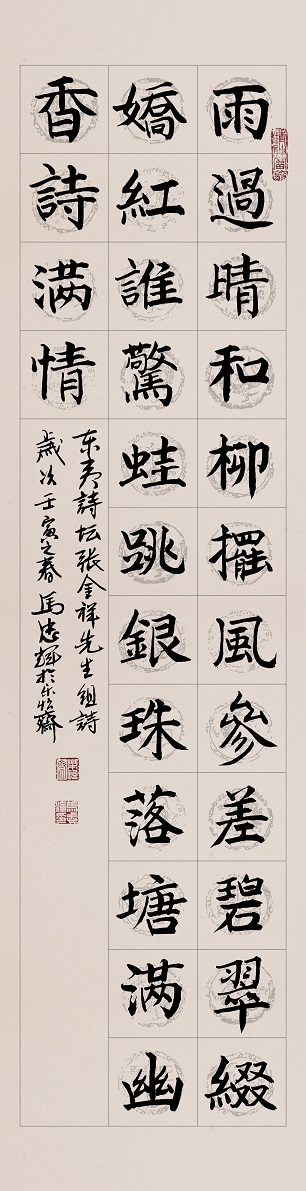 雨過晴和柳擺風參差碧翠綴
嬌紅誰驚蛙跳銀珠落塘满幽
香詩满情
东夷詩坛张金祥先生组詩
歲次壬寅之春馬忠輝於乐怡齋